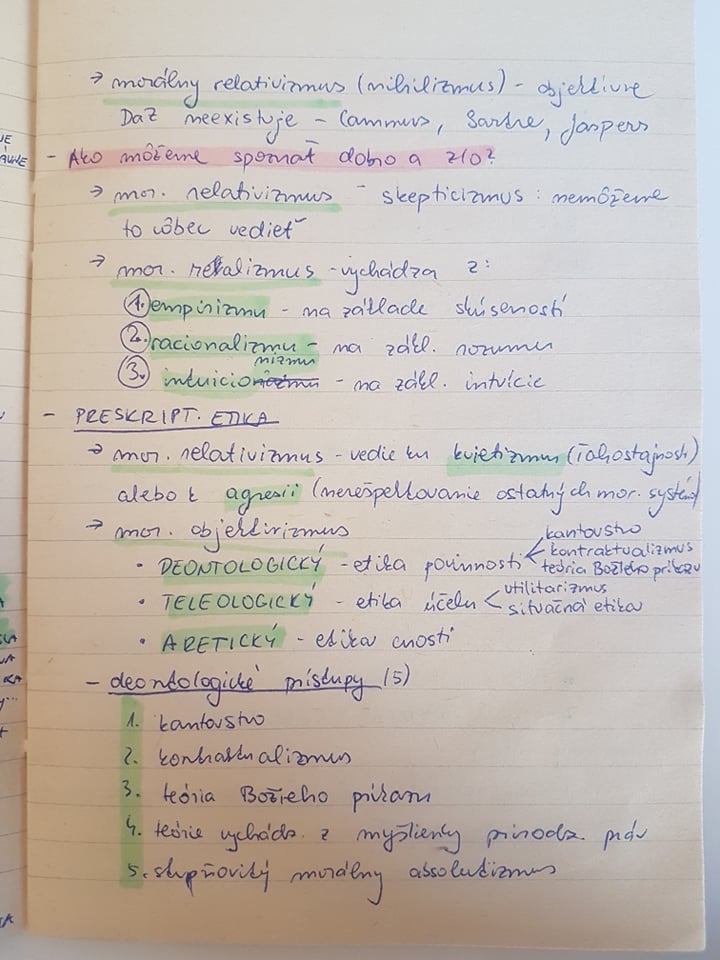 → morálny relativizmus (nihilizmus) - objektívne
DaZ neexistuje - Cammus, Sartre, Jaspers
- Ako môžeme spoznať dobro a zlo?
→ mor. relativizmus - skepticizmus: nemôžeme
to vôbec vedieť
→ mor. realizmus - vychádza z:
1. empirizmu - na základe skúseností
2. racionalizmu - na zákl. rozumu
nizmu
3. intuicio - na zákl. intuície
- PRESKRIPT. ETIKA
→ mor. relativizmus - vedie ku kvietizmu (ľahostajnosť)
alebo k agresii (nerešpektovanie ostatných mor. systémov)
→ mor. objektivizmus
kantovstvo
kontraktualizmus
• DEONTOLOGICKÝ - etika povinnosti teória Božieho príkazu
utilitarizmus
• TELEOLOGICKÝ - etika účelu < situačná etika
• ARETICKÝ - etika cností
- deontologické prístupy (5)
1. kantovstvo
2. kontraktualizmus
3. teória Božieho príkazu
4. teórie vychádz. z myšlienky prirodz. práv
5. stupňovitý morálny absolutizmus